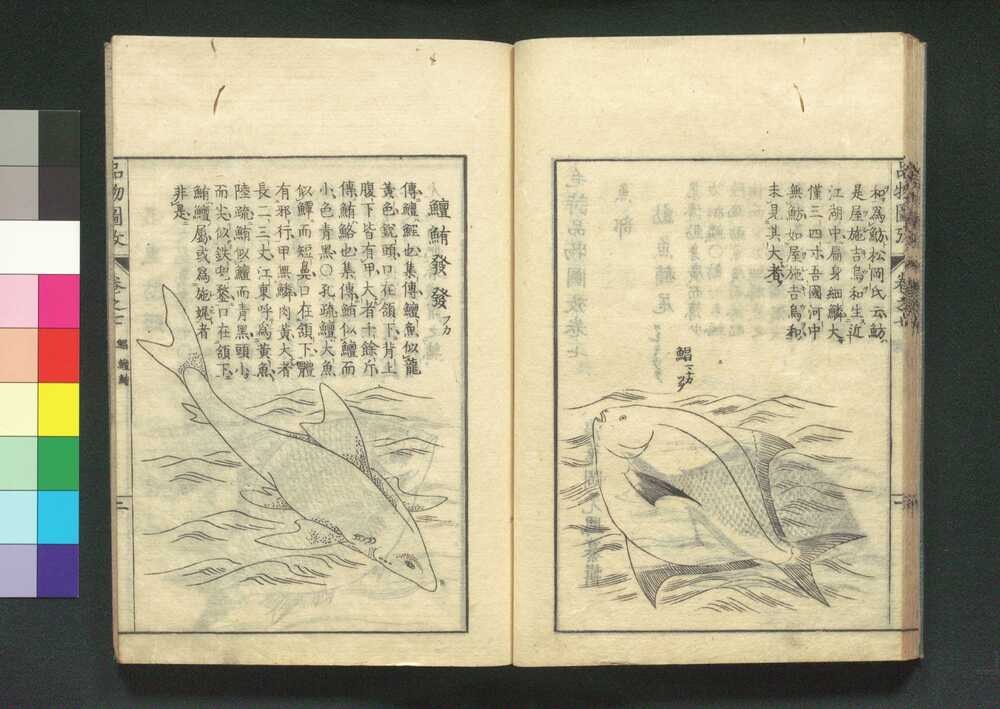 和爲魴松岡氏云魴
是屋施吉烏和生近
江湖中扁身細鱗大
僅三四寸吾國河中
無魴如屋施吉烏和
未見其大者
鯧
鱣鮪發發
傳鱣鯉也集傳鱣魚似龍
黃色銳頭口在頷下背上
腹下皆有甲大者千餘斤
傳鮪鮥也集傳鮪似鱣而
小色青黑〇孔疏鱣大魚
似鱏而短鼻口在頷下體
有邪行甲無鱗肉黃大者
長二三丈江東呼爲黃魚
陸疏鮪似鱣而青黑頭小
而尖似鐵兜鍪口在頷下
鮪鱣屬或爲鮑鰉者
非是
品物圖攷 卷之七
鯧 鱣鮪
二